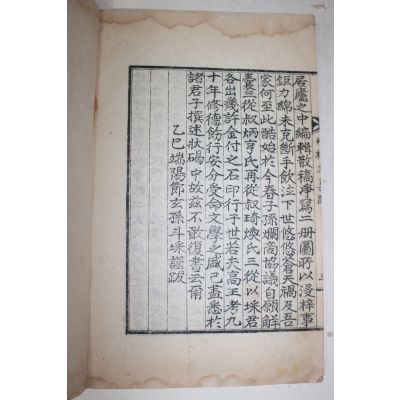 居廬之中編輯散稿淨寫二册圖所以漫梓事
鉅力綿未克斷手飮泣下世悠悠蒼天禍及吾
家何至此酷始於今春子孫爛商協議自願解
囊三從叔炳亨氏再從叔琦煥氏三從以埰君
各出幾許金付之石印行于世若夫高王考九
十年修德飭行安分受命文學之盛已盡悉於
諸君子撰述狀碣中故玆不敢復書云爾
乙巳端陽節玄孫斗埰謹跋